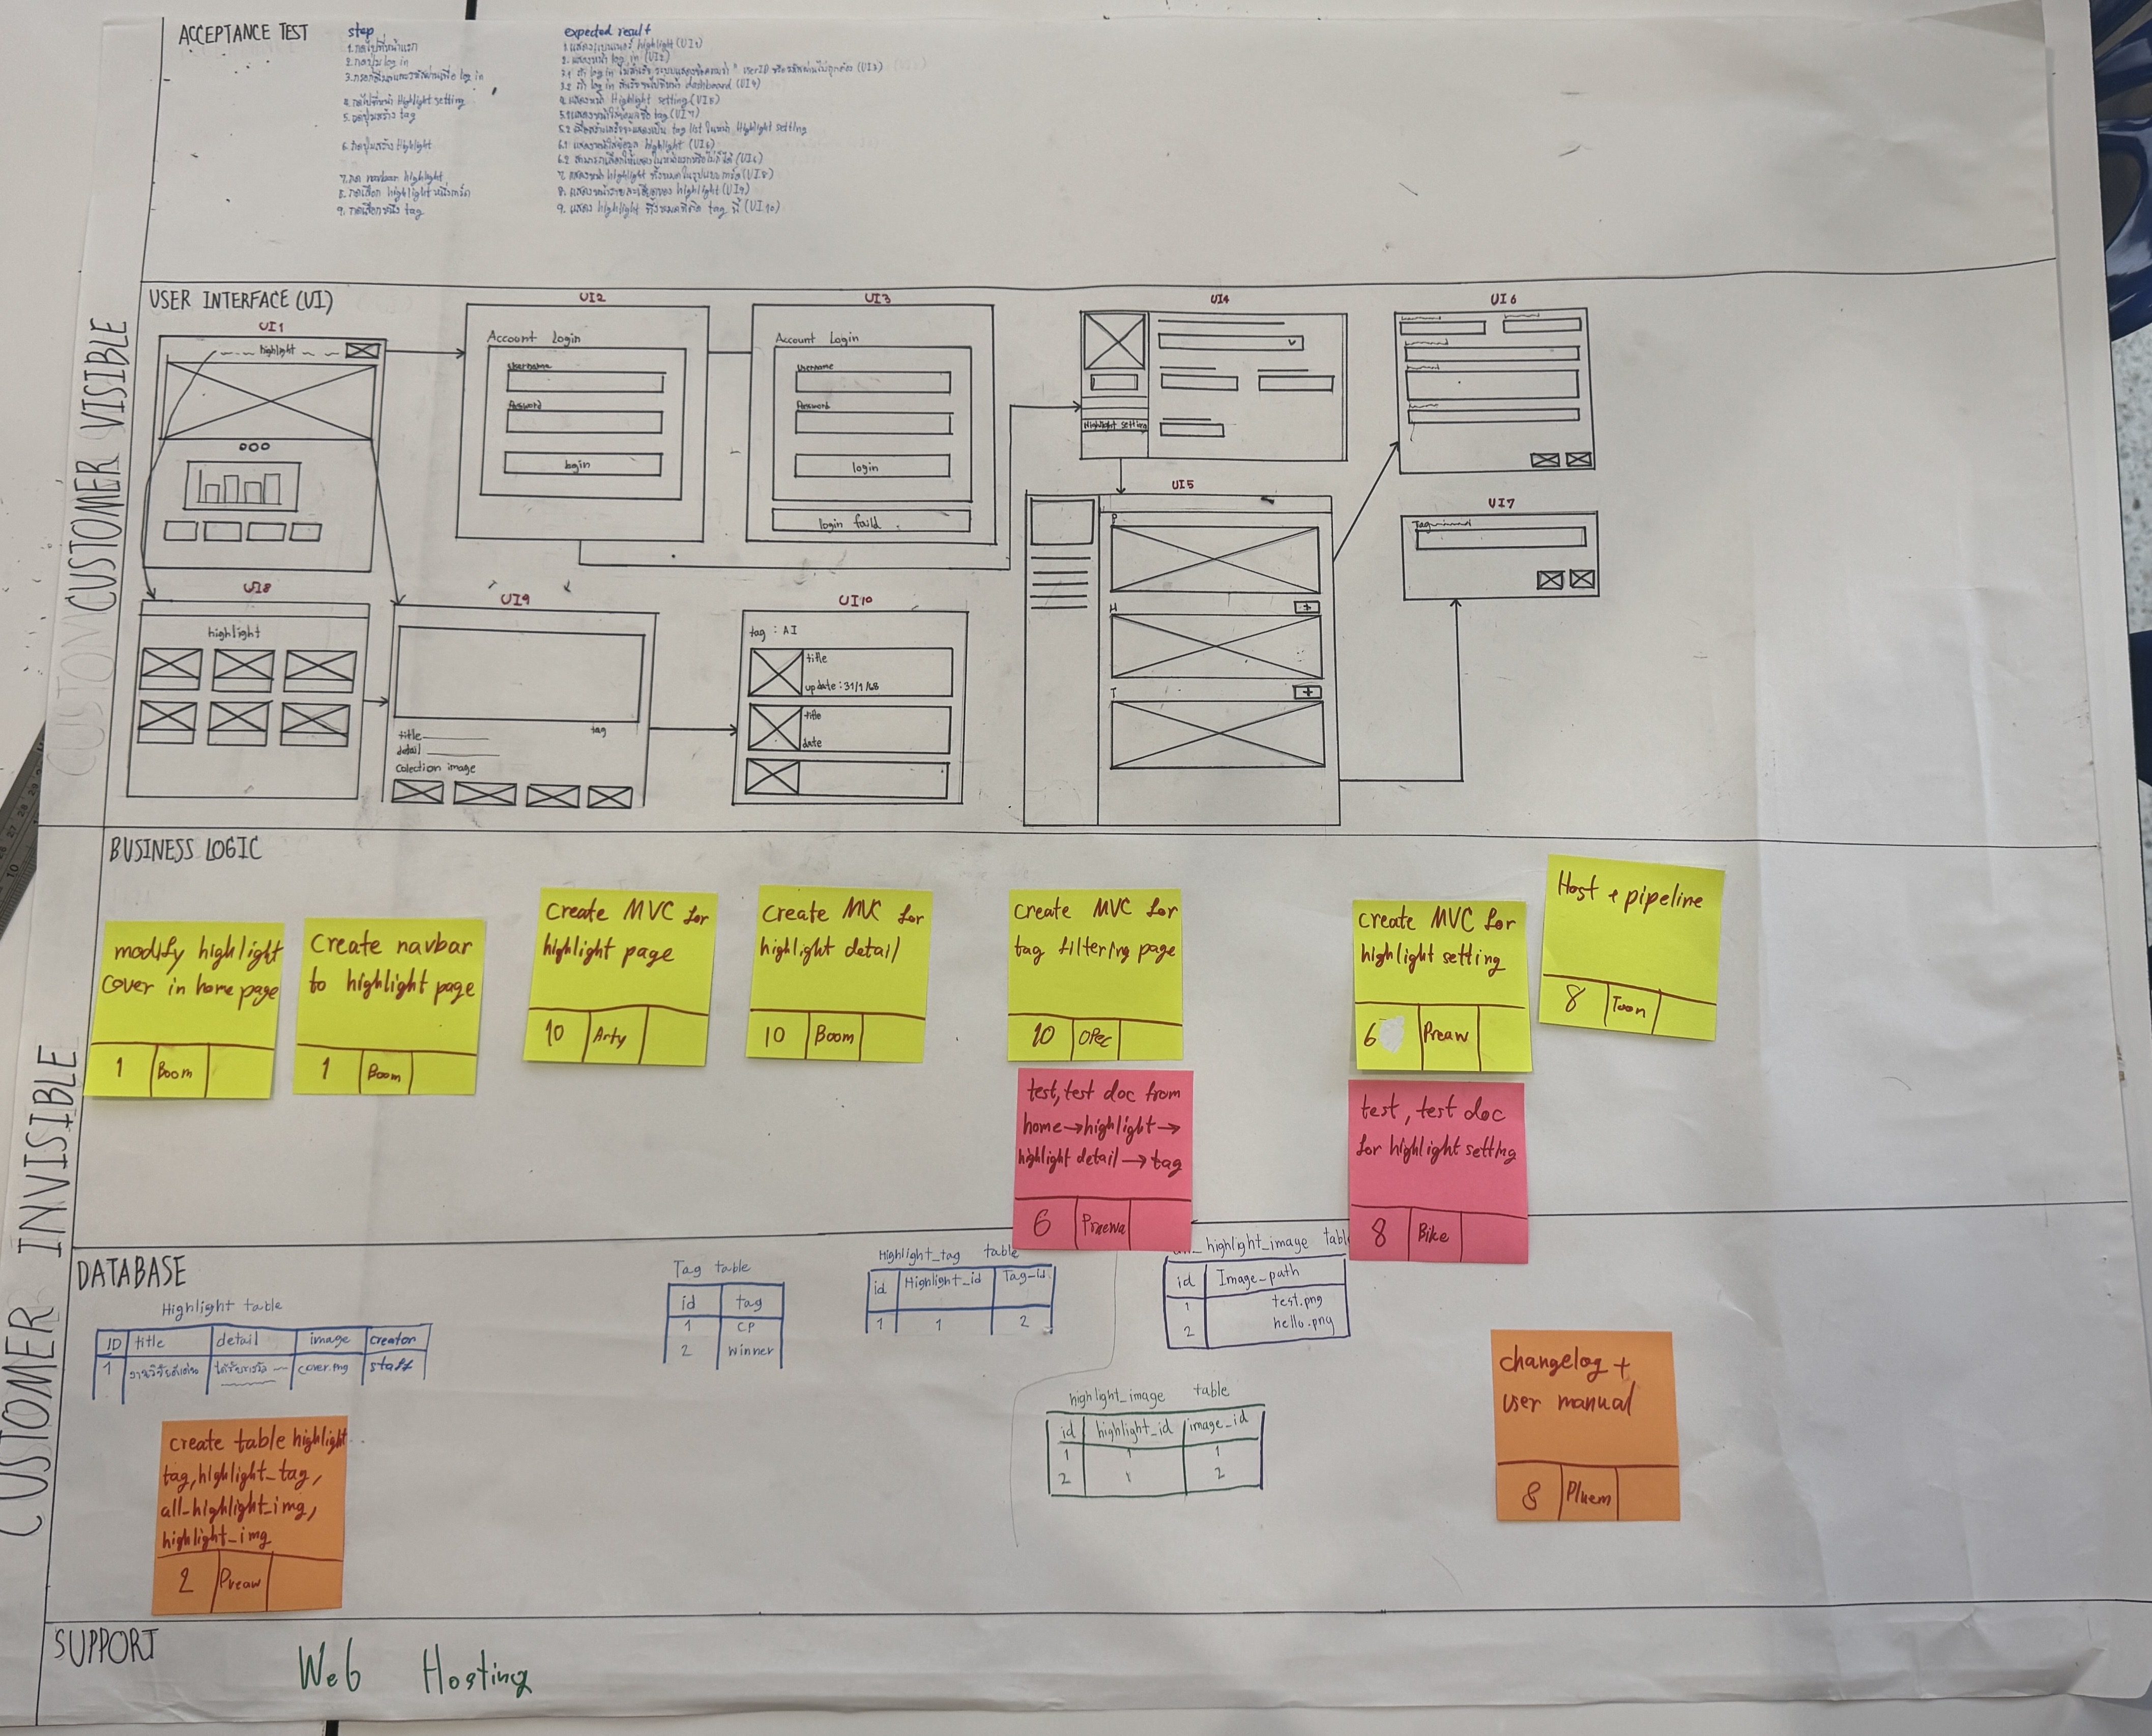 ACCEPTANCE TEST
step
1. กดไปที่หน้าแรก
2. กดปุ่ม log in
3. กรอกชื่อและรหัสผ่านเพื่อ log in
4. กดไปที่หน้า Highlight setting
5. กดปุ่มสร้าง tag
6. กดปุ่มสร้าง Highlight
7. กด navbar highlight
8. กดเลือก highlight หนึ่งการ์ด
9. กดเลือกหนึ่ง tag
expected result
1. แสดงแบนเนอร์ highlight (UI1)
2. แสดงหน้า log in (UI2)
3.1 ถ้า log in ไม่สำเร็จ ระบบแสดงข้อความว่า " userID หรือรหัสผ่านไม่ถูกต้อง (UI3)
3.2 ถ้า log in สำเร็จ dashboard (UI4)
4. แสดงหน้า Highlight setting (UI5)
5.1 แสดงหน้าใส่ข้อมูลชื่อ tag (UI7)
5.2 เมื่อสร้างเสร็จจะแสดงเป็น tag list ในหน้า Highlight setting
6.1 แสดงหน้าใส่ข้อมูล highlight (UI6)
6.2 สามารถเลือกให้แสดงในหน้าแรกหรือไม่ก็ได้ (UI6)
7. แสดงหน้า highlight ทั้งหมดในรูปแบบการ์ด (UI8)
8. แสดงหน้ารายละเอียดของ highlight (UI9)
9. แสดง highlight ทั้งหมดที่ติด tag นี้ (UI10)
CUSTOMER VISIBLE
USER INTERFACE (UI)
UI1
highlight
UI2
Account Login
Username
Password
login
UI3
Account Login
Username
Password
login
login faild
UI4
Highlight setting
UI6
UI5
P
H
+
T
+
UI7
Tag
UI8
highlight
UI9
title
tag
detail
Colection image
UI10
tag : AI
title
update : 31/1/68
title
date
CUSTOMER INVISIBLE
BUSINESS LOGIC
modify highlight
cover in home page
1 Boom
Create navbar
to highlight page
1 Boom
Create MVC for
highlight page
10 Arty
Create MVC for
highlight detail
10 Boom
Create MVC for
tag filtering page
10 OPEC
create MVC for
highlight setting
6 Preaw
Host + pipeline
8 Toon
test, test doc from
home→highlight→
highlight detail→tag
6 Praewa
test, test doc
for highlight setting
8 Bike
DATABASE
Highlight table
ID title detail image creator
1 cover.png staff
Tag table
id tag
1 CP
2 winner
Highlight_tag table
id Highlight_id Tag_id
1 1 2
highlight_image table
id Image_path
1 test.png
2 hello.png
highlight_image table
id highlight_id image_id
1 1 1
2 1 2
create table highlight
tag, highlight_tag,
all_highlight_img,
highlight_img
2 Preaw
changelog +
user manual
8 Pluem
SUPPORT
Web Hosting